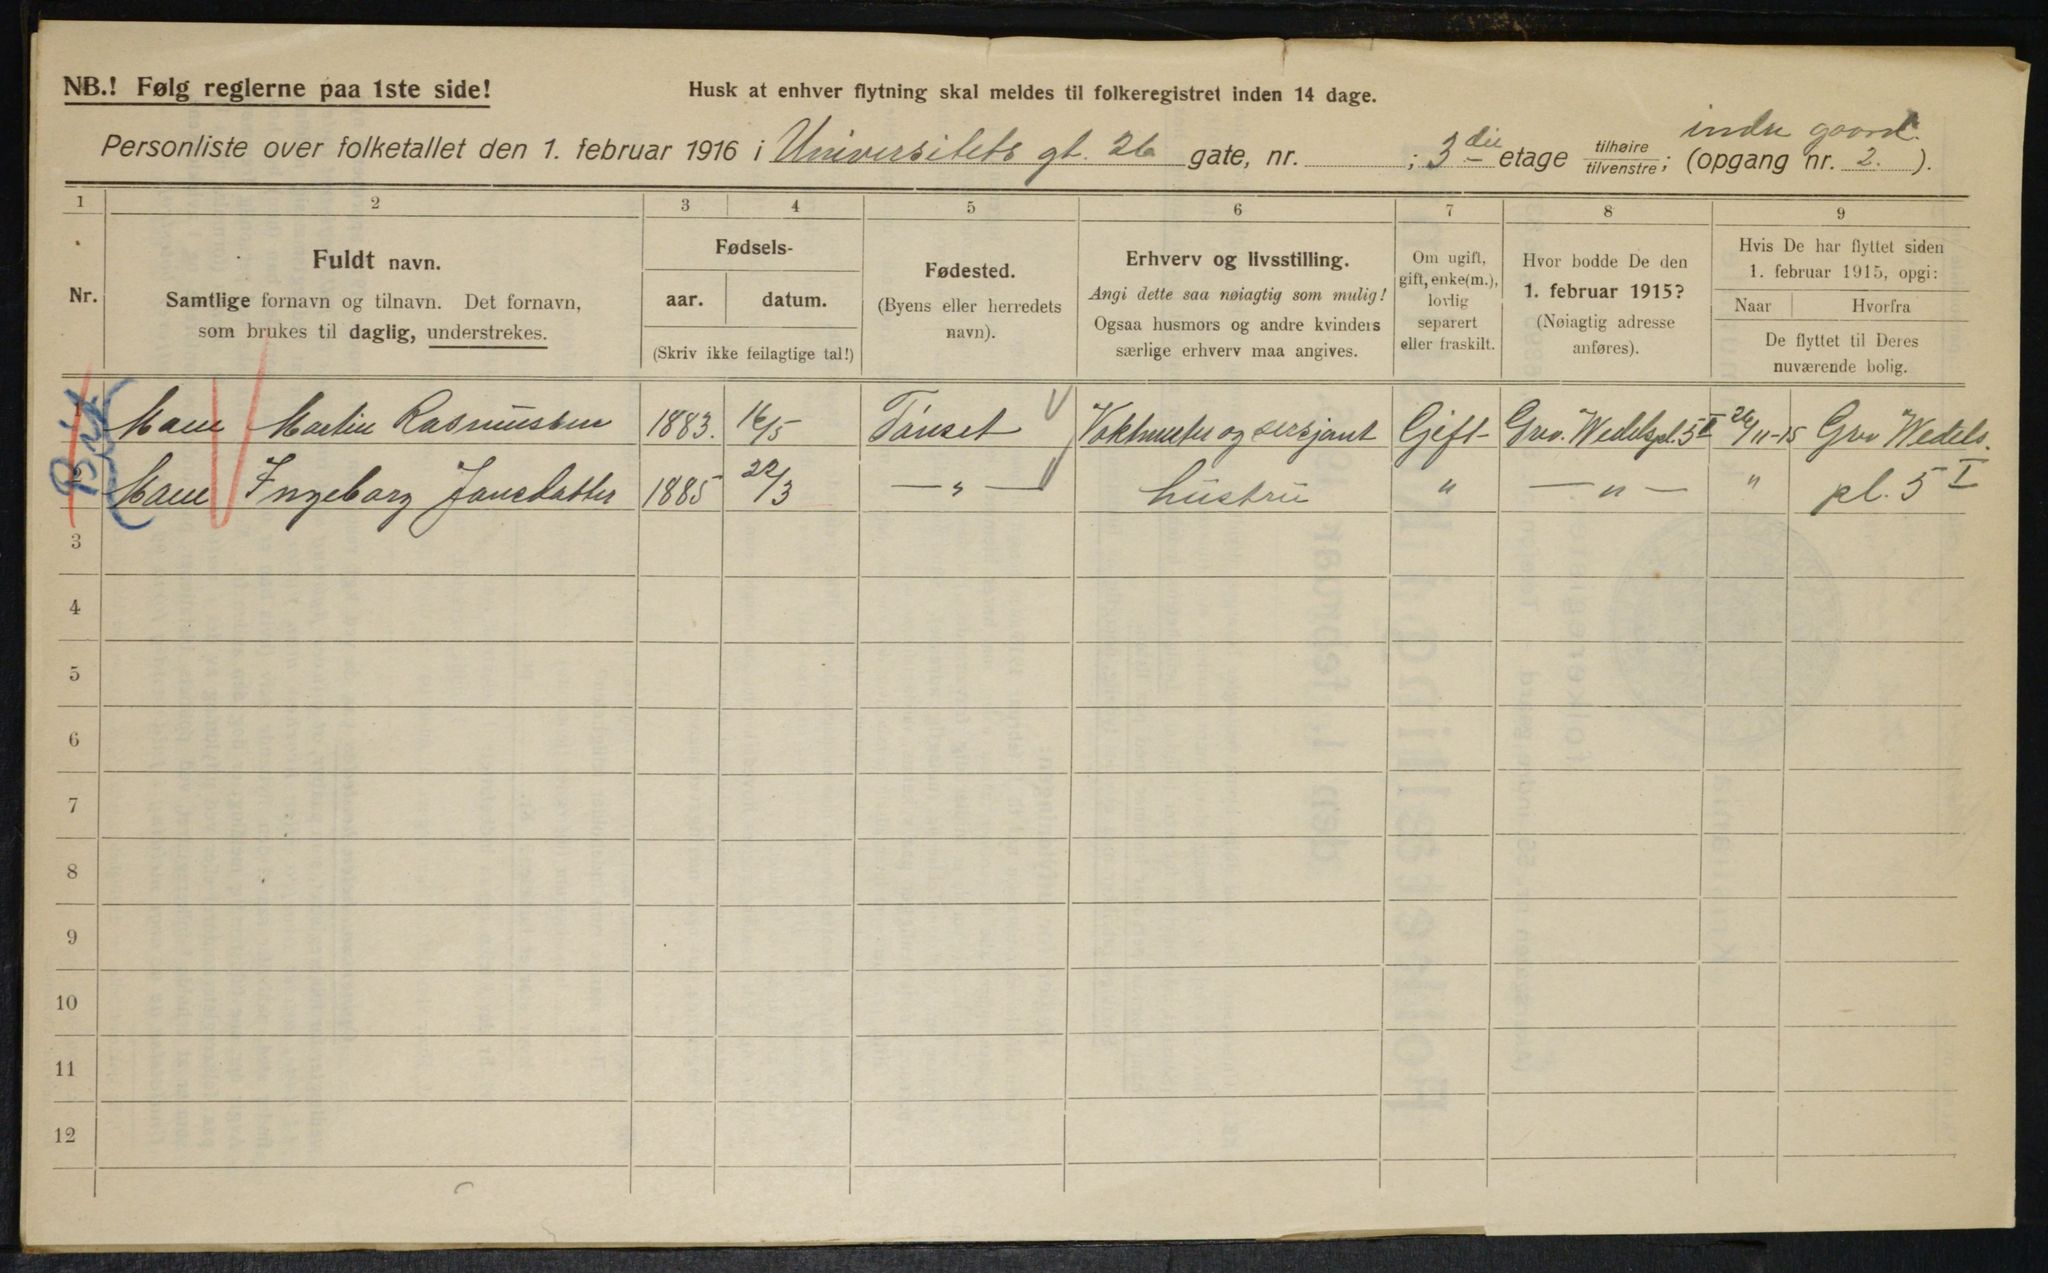 NB.! Følg reglerne paa 1ste side!
Husk at enhver flytning skal meldes til folkeregistret inden 14 dage.
indre gaard.
Personliste over folketallet den 1. februar 1916 i Universitets gt. 26 gate, nr. ; 3die etage tilhøire/tilvenstre; (opgang nr. 2.).
1 2 3 4 5 6 7 8 9
Nr.
Fuldt navn.
Samtlige fornavn og tilnavn. Det fornavn,
som brukes til daglig, understrekes.
Fødsels-
aar. datum.
(Skriv ikke feilagtige tal!)
Fødested.
(Byens eller herredets
navn).
Erhverv og livsstilling.
Angi dette saa nøiagtig som mulig!
Ogsaa husmors og andre kvinders
særlige erhverv maa angives.
Om ugift,
gift, enke(m.),
lovlig
separert
eller fraskilt.
Hvor bodde De den
1. februar 1915?
(Nøiagtig adresse
anføres).
Hvis De har flyttet siden
1. februar 1915, opgi:
Naar Hvorfra
De flyttet til Deres
nuværende bolig.
1 Martin Rasmussen 1883. 16/5 Tönset Vaktmester og sersjant Gift Grv. Wedelspl. 5 I 26/11-15 Grv Wedels.
2 Ingeborg Jonsdatter 1885 22/3 — " — hustru " — " — " pl. 5 I
3
4
5
6
7
8
9
10
11
12